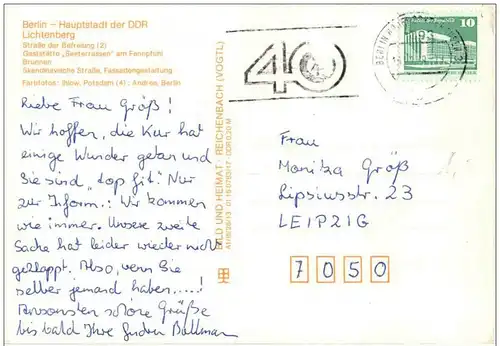 Berlin – Hauptstadt der DDR
Lichtenberg
Straße der Befreiung (2)
Gaststätte „Seeterrassen“ am Fennpfuhl
Brunnen
Skandinavische Straße, Fassadengestaltung
Farbfotos: Ihlow, Potsdam (4), Andree, Berlin
Liebe Frau Größ!
Wir hoffen, die Kur hat
einige Wunder getan und
Sie sind „top fit“. Nur
zur Inform.: Wir kommen
wie immer. Unsere zweite
Sache hat leider wieder nicht
geklappt. Also, wenn Sie
selber jemand haben,....!
Ansonsten schöne Grüße
bis bald Ihre
BILD UND HEIMAT REICHENBACH (VOGTL)
A1/B/26/13 DDR 0,20 M
40
BERLIN
10
Frau
Monika Größ
Lipsiusstr. 23
LEIPZIG
7 0 5 0